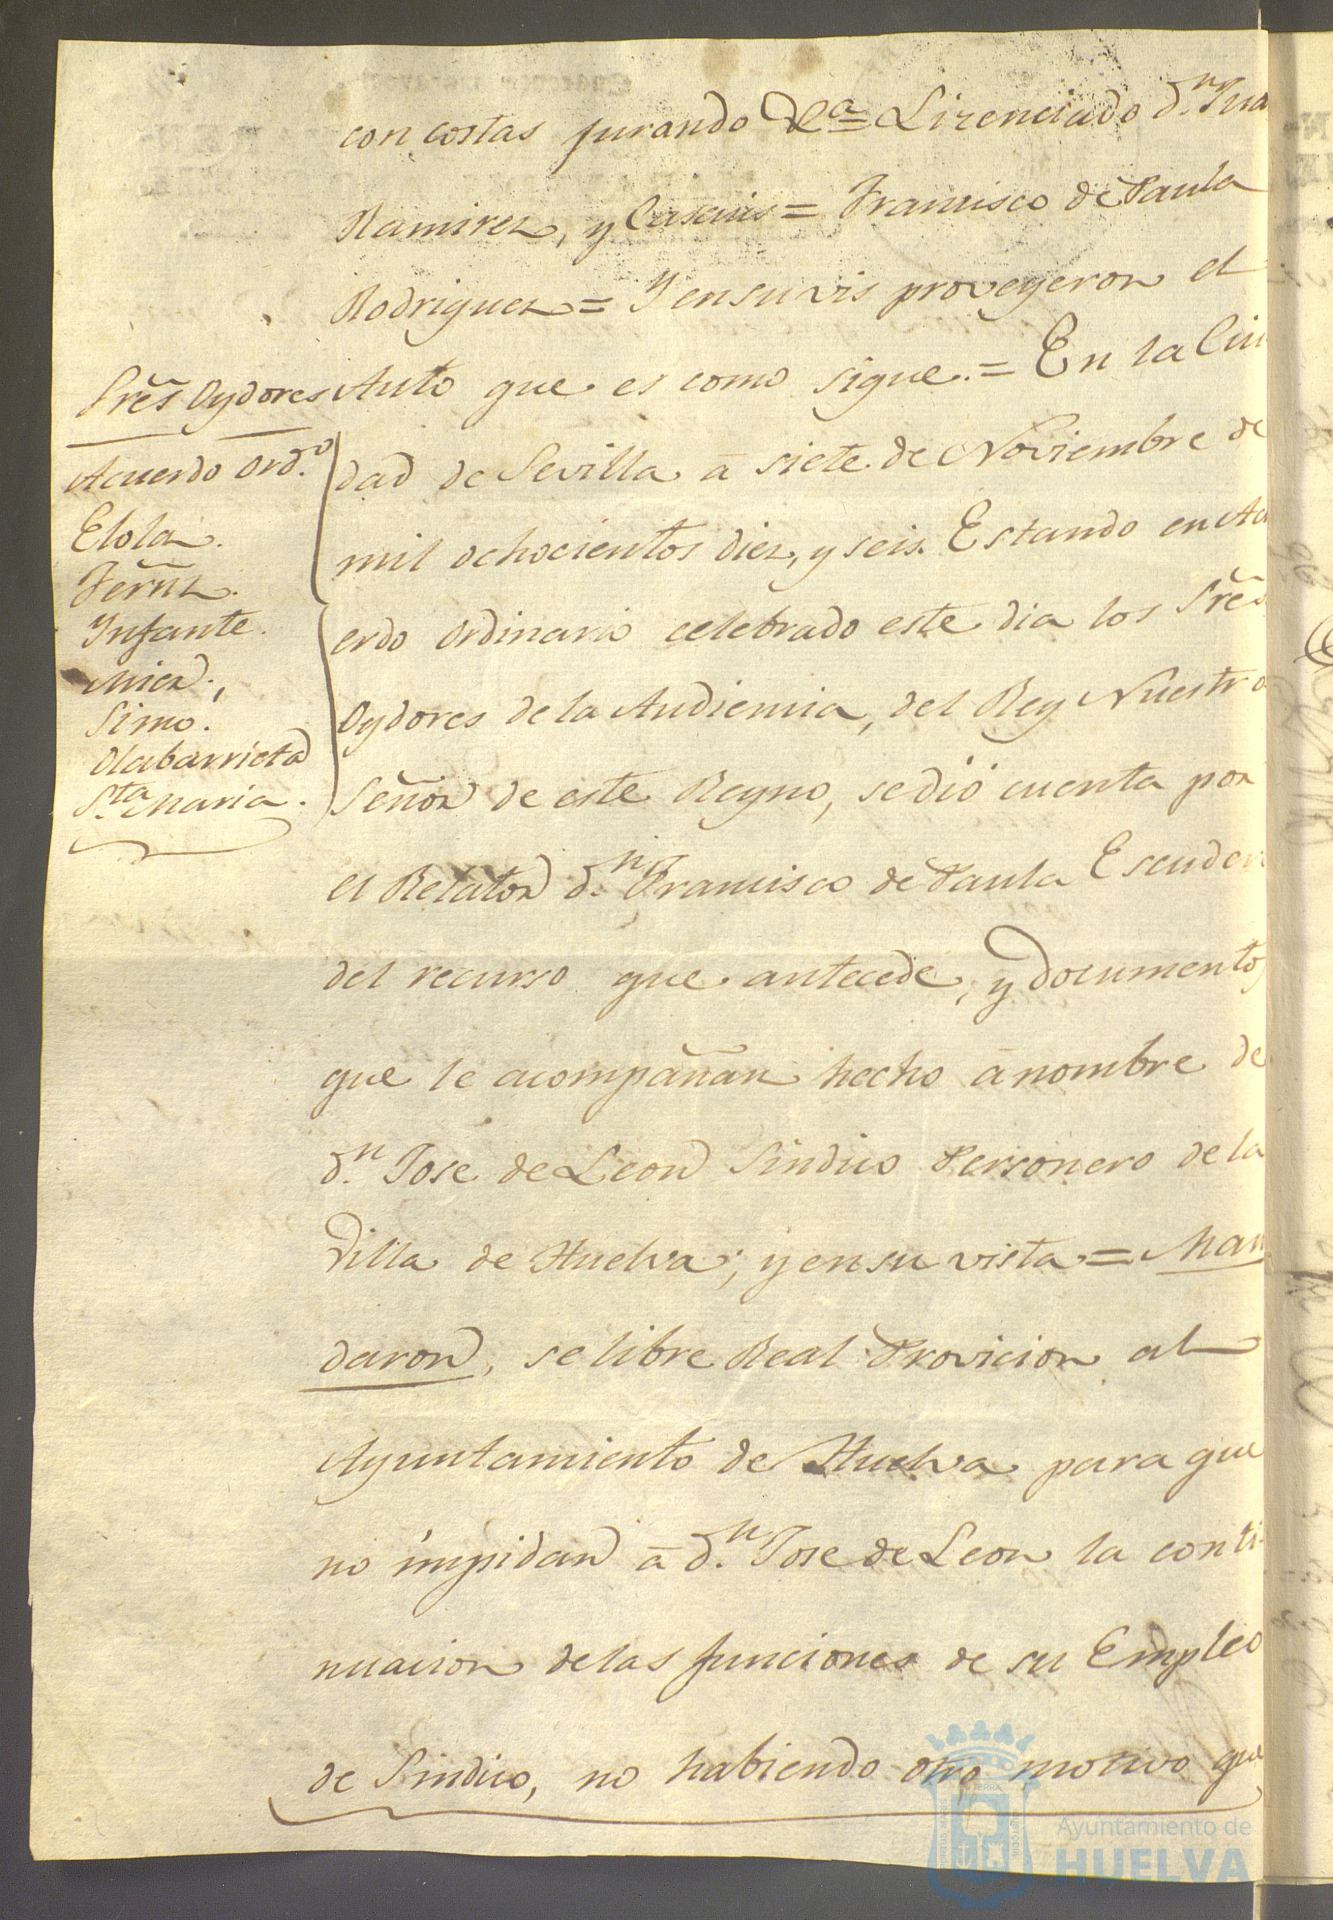 con costas jurando &ca = Lizenciado d.n Jua
Ramirez, y Cascius = Francisco de Paula
Rodriguez = Y en su vis proveyeron el
Auto que es como sigue. = En la Ciu
dad de Sevilla a siete de Noviembre de
mil ochocientos diez, y seis. Estando en Acu
erdo ordinario celebrado este dia los Sres
Oydores de la Audiencia, del Rey Nuestro
Señor de este Reyno, se dió cuenta por
el Relator d.n Francisco de Paula Escudero
del recurso que antecede, y documentos
que le acompañan hecho á nombre de
d.n Jose de Leon Sindico Personero de la
Villa de Huelva; y en su vista = Man
daron, se libre Real Provicion al
Ayuntamiento de Huelva para que
no impidan á d.n Jose de Leon la conti-
nuacion de las funciones de su Empleo
de Sindico, no habiendo otro motivo que
Sres Oydores
Acuerdo Ord.o
Elola.
Fernz.
Ynfante.
Mier.,
Simo.
Olabarrieta
S.ta Maria.
Ayuntamiento de
HUELVA